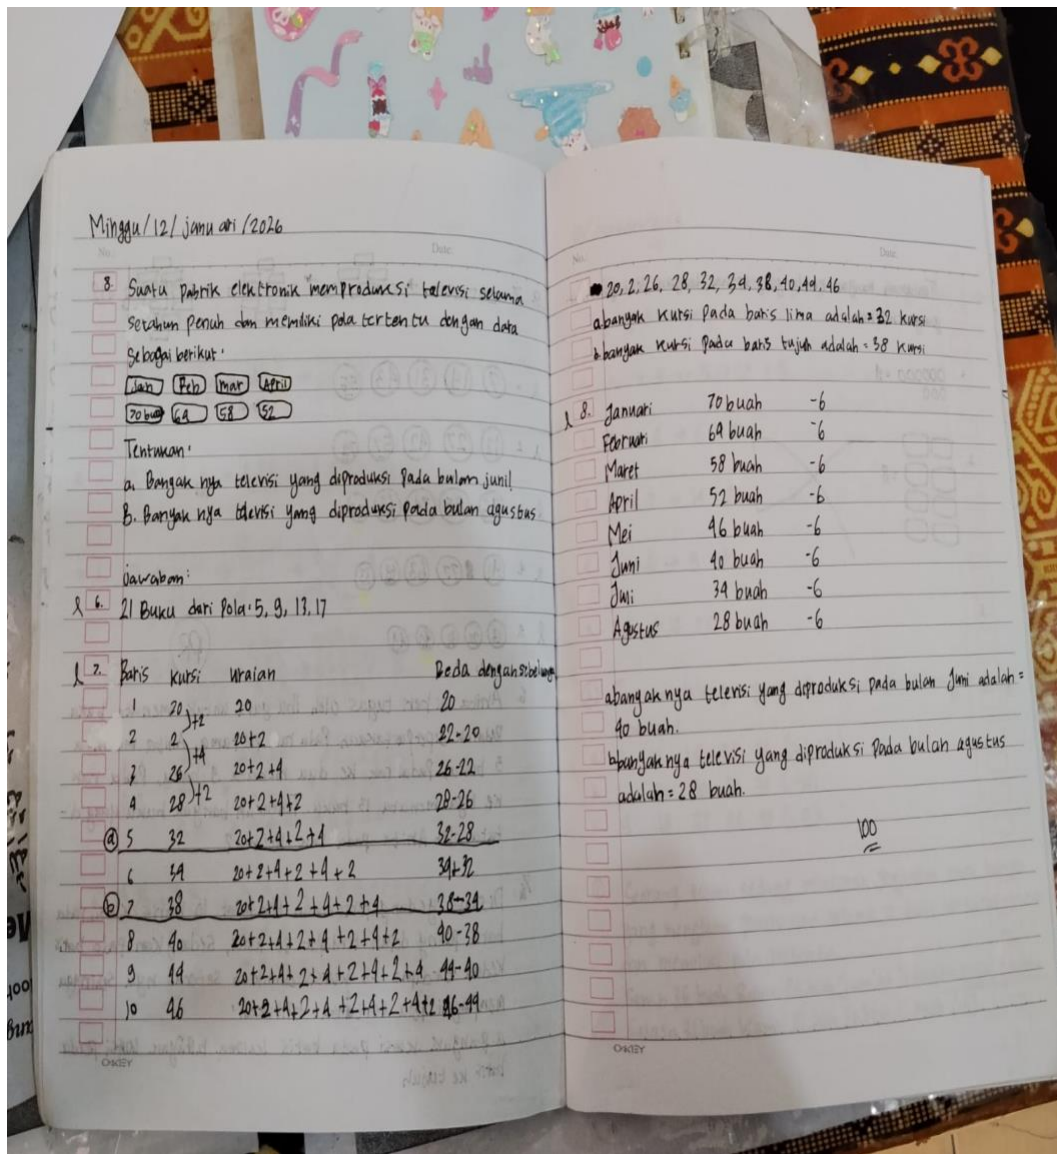 Minggu/12/januari/2026
No.
Date:
8. Suatu pabrik elektronik memproduksi televisi selama
setahun penuh dan memiliki pola tertentu dengan data
sebagai berikut:
Jan Feb mar April
70 buah 64 58 52
Tentukan:
a. Bangak nya televisi yang diproduksi Pada bulan juni!
B. Banyak nya televisi yang diproduksi pada bulan agustus
Jawaban:
6. 21 Buku dari Pola: 5, 9, 13, 17
7. Baris Kursi uraian Beda dengan sebelumnya
1 20 20 20
+2
2 2 20+2 22-20
+4
3 26 20+2+4 26-22
+2
4 28 20+2+4+2 28-26
a 5 32 20+2+4+2+4 32-28
6 34 20+2+4+2+4+2 34+32
b 7 38 20+2+4+2+4+2+4 38-34
8 40 20+2+4+2+4+2+4+2 40-38
9 44 20+2+4+2+4+2+4+2+4 44-40
10 46 20+2+4+2+4+2+4+2+4+2 46-44
OAKLEY
No.
Date:
20, 2, 26, 28, 32, 34, 38, 40, 44, 46
a banyak kursi pada baris lima adalah = 32 kursi
b bangak kursi pada baris tujuh adalah = 38 kursi
8. Januari 70 buah -6
Februari 64 buah -6
Maret 58 buah -6
April 52 buah -6
Mei 46 buah -6
Juni 40 buah -6
Juli 34 buah -6
Agustus 28 buah -6
a bangaknya televisi yang diproduksi pada bulan Juni adalah =
40 buah.
b bangaknya televisi yang diproduksi Pada bulan agustus
adalah = 28 buah.
100